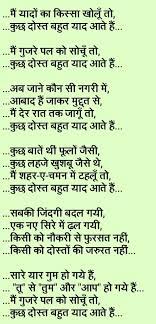 ...मैं यादों का किस्सा खोलूँ तो,
...कुछ दोस्त बहुत याद आते हैं...
...मैं गुजरे पल को सोचूँ तो,
...कुछ दोस्त बहुत याद आते हैं...
...अब जाने कौन सी नगरी में,
...आबाद हैं जाकर मुद्दत से,
...मैं देर रात तक जागूँ तो,
...कुछ दोस्त बहुत याद आते हैं...
...कुछ बातें थीं फूलों जैसी,
...कुछ लहजे खुशबू जैसे थे,
...मैं शहर-ए-चमन में टहलूँ तो,
...कुछ दोस्त बहुत याद आते हैं...
...सबकी जिंदगी बदल गयी,
...एक नए सिरे में ढल गयी,
...किसी को नौकरी से फ़ुरसत नहीं,
...किसी को दोस्तों की जरुरत नही...
...सारे यार गुम हो गये हैं,
... "तू" से "तुम" और "आप" हो गये हैं...
...मैं गुजरे पल को सोचूँ तो,
...कुछ दोस्त बहुत याद आते हैं...